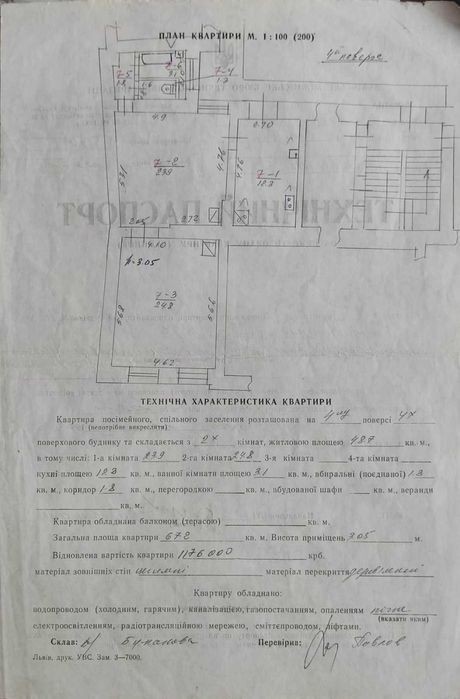 ПЛАН КВАРТИРИ М. 1 : 100 (200)
4ий поверх
7-6
3.1
7-5
1.8
1.6
7-4
1.3
4.9
2.70
5.21
7-2
23.9
4.76
4.76
7-1
12.3
2.05
2.72
4.10
h-3.05
7-3
24.8
5.68
5.66
4.62
ТЕХНІЧНА ХАРАКТЕРИСТИКА КВАРТИРИ
Квартира посімейного, спільного заселення розташована на 4ому поверсі 4х
(непотрібне викреслити)
поверхового будинку та складається з 2х кімнат, житловою площею 48.7 кв. м.,
в тому числі: 1-а кімната 23.9 2-га кімната 24.8 3-я кімната 4-та кімната
кухні площею 12.3 кв. м., ванної кімнати площею 3.1 кв. м., вбиральні (поєднаної) 1.3
кв. м., коридор 1.8 кв. м., перегородкою кв. м., вбудованої шафи кв. м., веранди
кв. м.
Квартира обладнана балконом (терасою) кв. м.
Загальна площа квартири 67.2 кв. м. Висота приміщень 3.05 м.
Відновлена вартість квартири 1176000 крб.
матеріал зовнішніх стін цегляні матеріал перекриття дерев'яний
Квартиру обладнано:
водопроводом (холодним, гарячим), каналізацією, газопостачанням, опаленням пічне
(вказати яким)
електроосвітленням, радіотрансляційною мережею, сміттєпроводом, ліфтами.
Склав: Перевірив: Павлов
Львів, друк. УВС. Зам. 3—7000.